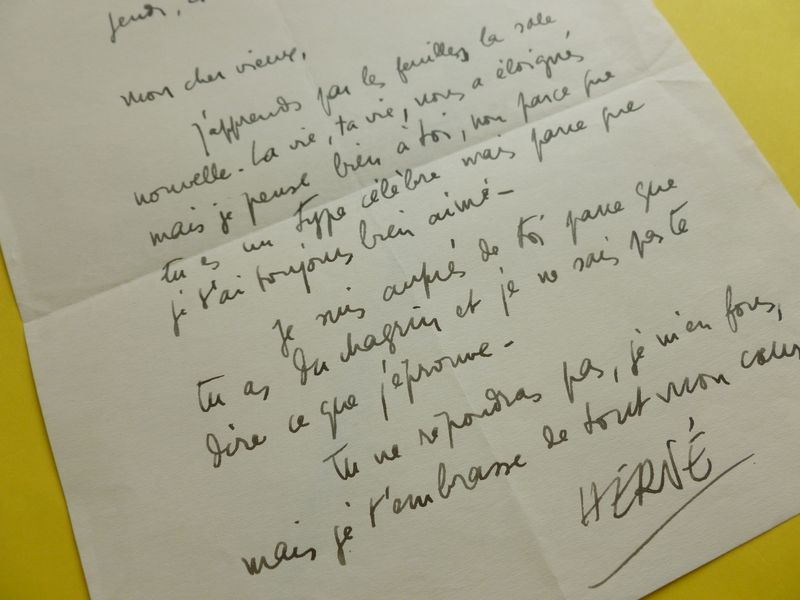 jeudi,
mon cher vieux,
j'apprends par les feuilles la sale
nouvelle. La vie, ta vie, nous a éloignés
mais je pense bien à toi, non parce que
tu es un type célèbre mais parce que
je t'ai toujours bien aimé -
Je suis auprés de toi parce que
tu as du chagrin et je ne sais pas te
dire ce que j'éprouve -
Tu ne répondras pas, je m'en fous,
mais je t'embrasse de tout mon cœur
HERNÉ